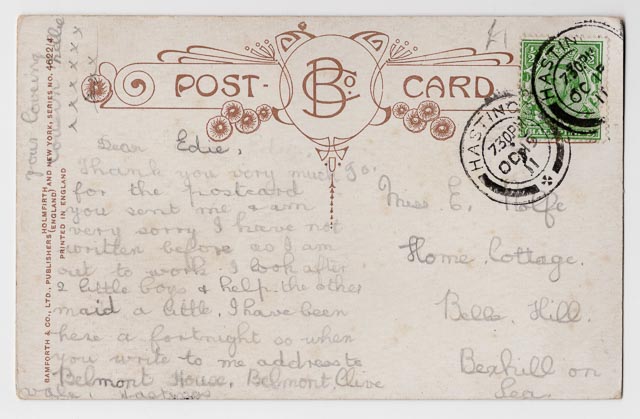 POST-CARD
B&Co
£1
HASTINGS
7.30PM
OC 19
11
HASTINGS
7.30PM
OC 19
11
Dear Edie,
Thank you very much
for the postcard
you sent me & am
very sorry I have not
written before as I am
out to work. I look after
2 little boys & help the other
maid a little. I have been
here a fortnight so when
you write to me address to
Belmont House, Belmont, Clive
vale, Hastings
your loving
cousin Nellie
x x x x x x
Miss E. Rolfe
Home Cottage.
Belle Hill.
Bexhill on
Sea
BAMFORTH & CO., LTD., PUBLISHERS HOLMFIRTH (ENGLAND) AND NEW YORK, SERIES NO. 4622/4
PRINTED IN ENGLAND